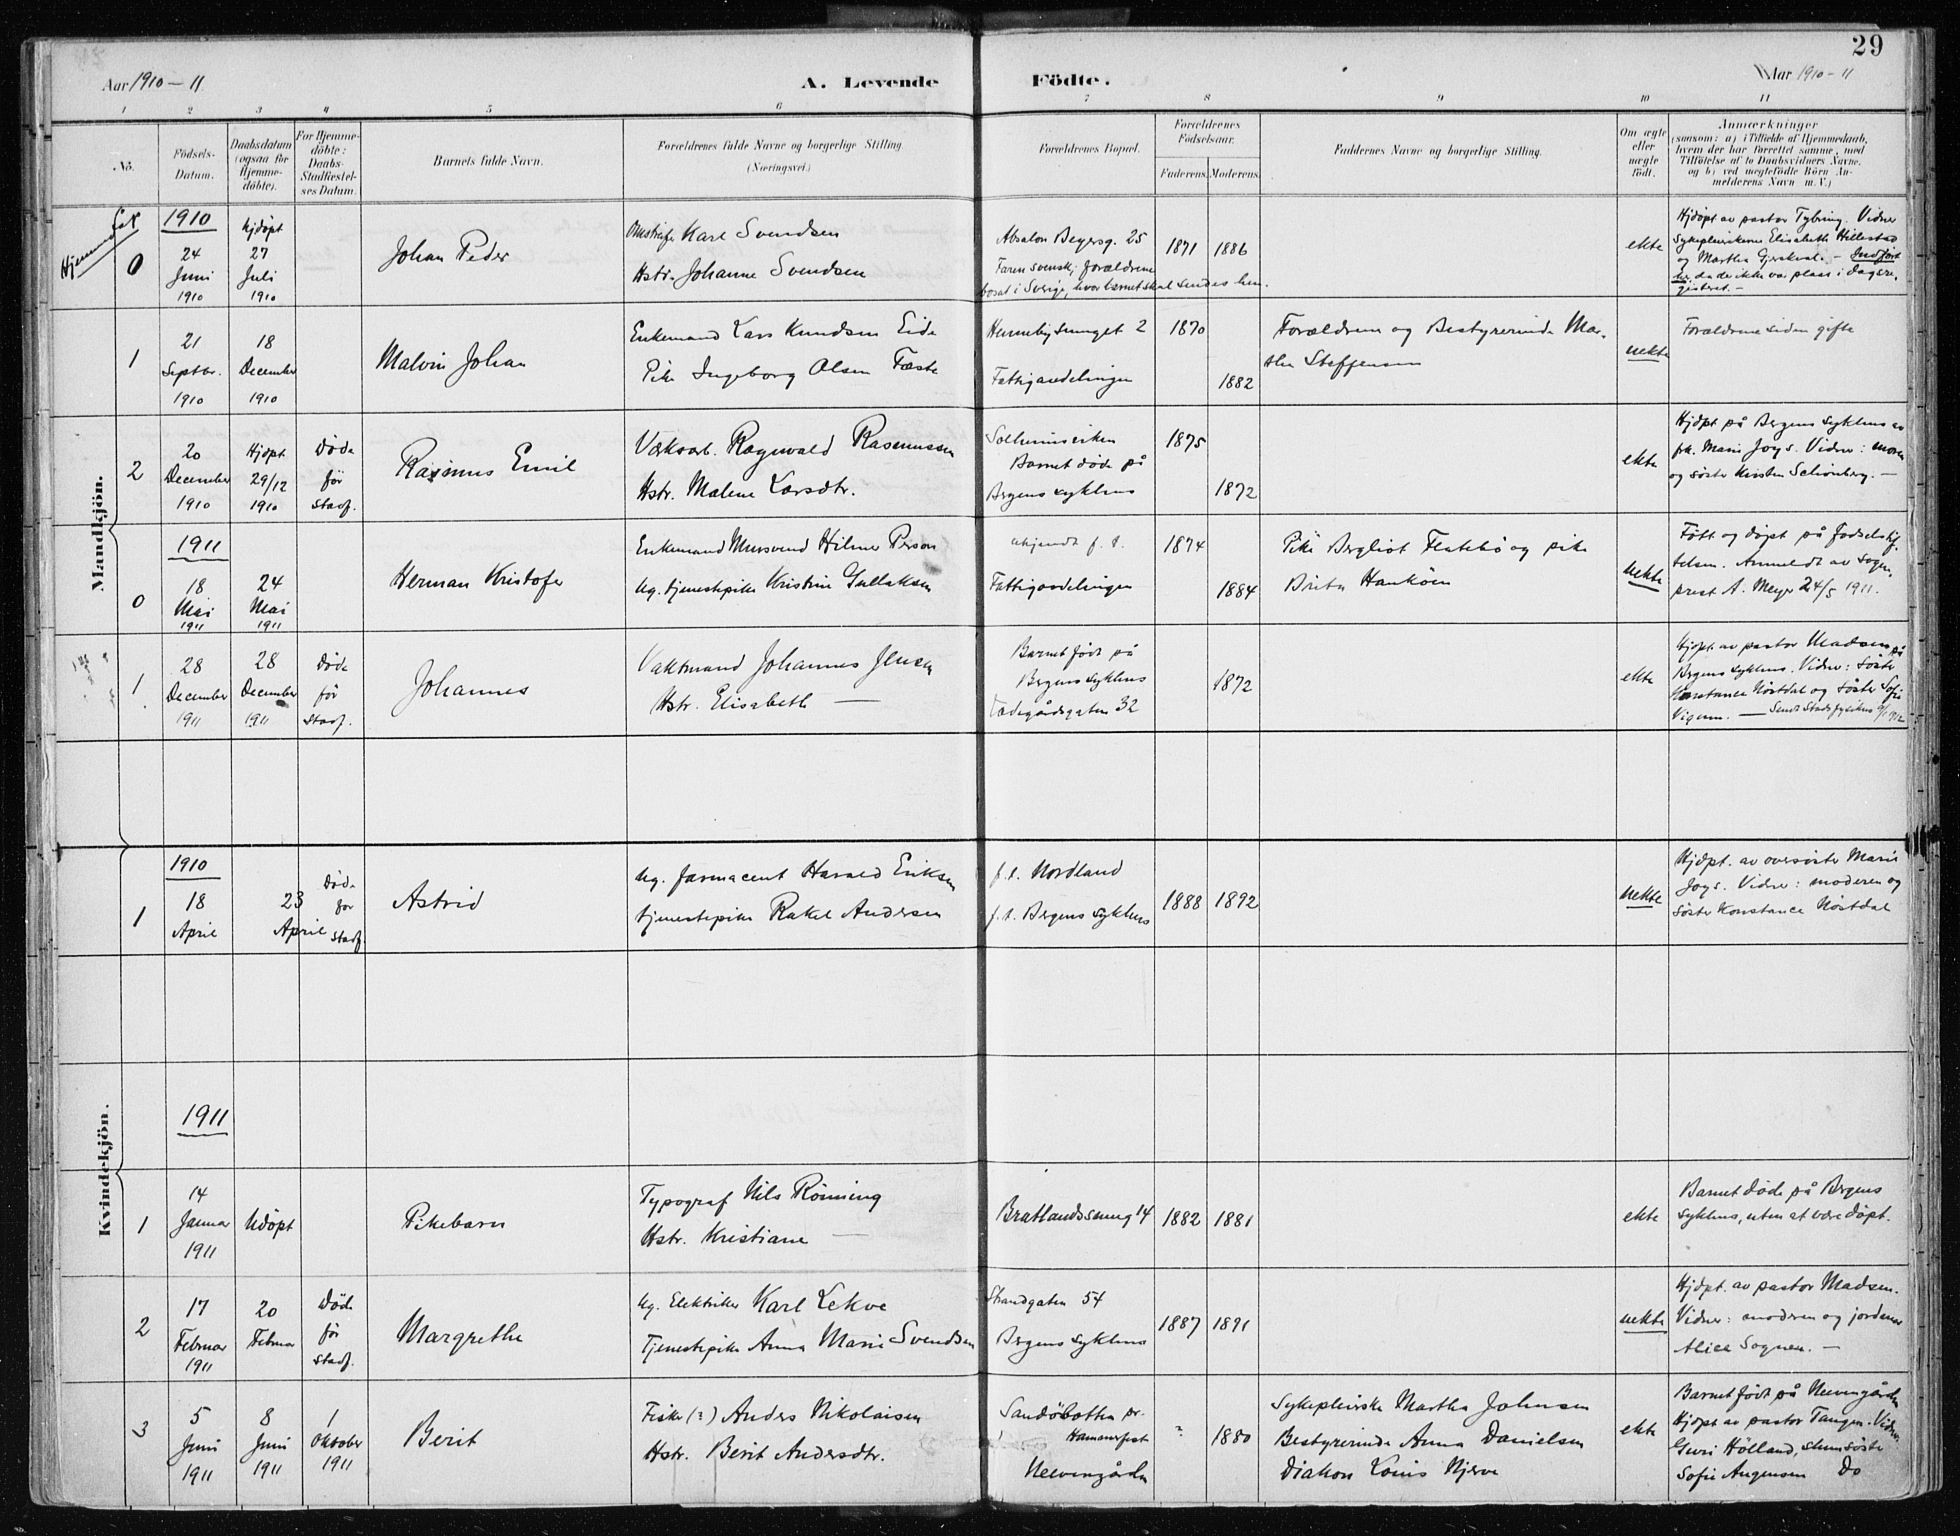 29
Aar 1910-11
A. Levende
Födte.
Aar 1910-11
1 2 3 4 5 6 7 8 9 10 11
No.
Födsels-
Datum.
Daabsdatum
(ogsaa for
Hjemme-
döbte).
For Hjemme-
döbte:
Daabs-
Stadfæstel-
ses Datum.
Barnets fulde Navn.
Forældrenes fulde Navne og borgerlige Stilling
(Næringsvei.)
Forældrenes Bopæl.
Forældrenes
Födselsaar.
Faderens. Moderens.
Faddernes Navne og borgerlige Stilling.
Om ægte
eller
uægte
födt.
Anmærkninger
(saasom: a) i Tilfælde af Hjemmedaab,
hvem der har forrettet samme, med
Tilföielse af to Daabsvidners Navne,
og b) ved uægtefödte Börn An-
melderens Navn m. V.)
Mandkjön.
1910
0
24
Juni
1910
Hjdøpt
27
Juli
1910
Johan Peder
Omstreifer Karl Svendsen
Hstr. Johanne Svendsen
Absalon Beyersg. 25
Faren svensk; forældrene
bosat i Sverige, hvor barnet skal sendes hen.
1871 1886
ekte
Hjdøpt av pastor Tybring. Vidner
Sykepleierskerne Elisabeth Hillestad
og Martha Gjerskvale. - Indført
her, da de ikke var plass i dagsre-
gisteret. -
1
21
Septbr.
1910
18
December
1910
Malvin Johan
Enkemand Lars Knudsen Eide
Pike Ingeborg Olsen Fæste
Hennebysmuget 2
Fattigavdelingen
1870
1882
Forældrene og Bestyrerinde Mar-
tha Steffensen
uekte
Forældrene siden gifte
2
20
December
1910
Hjdøpt
29/12
1910
Døde
før
Stadf.
Rasmus Emil
Verksarb. Ragnvald Rasmussen
Hstr. Malene Larsdtr.
Solheimsviken
Barnet døde på
Bergens sykehus
1875
1872
ekte
Hjdøpt på Bergens sykehus av
frk. Marie Joys. Vidner: moren
og søster Kirsten Schönberg. -
1911
0
18
Mai
1911
24
Mai
1911
Herman Kristofer
Enkemand Mursvend Hilmer Person
Ug. tjenestepike Kristine Gullaksen
ukjendt f. t.
Fattigavdelingen
1874
1884
Pike Bergliot Flatebø og pike
Brita Haukøen
uekte
Født og døpt på Fødselstif-
telsen. Anmeldt av Sogne-
prest A. Meyer 24/5 1911.
1
28
December
1911
28
December
1911
Døde
før
Stadf.
Johannes
Vaktmand Johannes Jensen
Hstr. Elisabeth —
Barnet født på
Bergens sykehus
Ladegårdsgaten 32
1872
ekte
Hjdøpt. av pastor Madsen på
Bergens sykehus. Vidner: Søster
Konstance Nøstdal og søster Sofie
Vigum. — Sendt Stadsfysikus 9/1 1912
1910
1
18
April
23
April
Døde
før
Stadf.
Astrid
Ug. farmaceut Harald Eriksen
tjenestepike Rakel Andersen
f. t. Nordland
f. t. Bergens sykehus
1888 1892
uekte
Hjdpt. av oversøster Marie
Joys. Vidner: moderen og
søster Konstance Nøstdal
Kvindekjön.
1911
1
14
Januar
1911
Udøpt
Pikebarn
Typograf Nils Rönning
Hstr. Kristiane —
Bratlandssmug 14
1882 1881
ekte
Barnet døde på Bergens
sykehus, uten at være døpt.
2
17
Februar
1911
20
Februar
Døde
før
Stadf.
Margrethe
Ug. Elektriker Karl Lekve
Tjenestepike Anna Marie Svendsen
Strandgaten 54
Bergens sykehus
1887 1891
uekte
Hjdpt. av pastor Madsen.
Vidner: moderen og jordemor
Alice Sognen. -
3
5
Juni
1911
8
Juni
1911
1
Oktober
1911
Berit
Fisker (?) Anders Nikolaisen
Hstr. Berit Andersdtr.
Sandöbotten pr.
Hammerfest
Neevengården
" 1880
Sykepleierske Martha Johnsen
Bestyrerinde Anna Danielsen
Diakon Louis Njerve
ekte
Barnet født på Neevengården
Hjdøpt av pastor Tangen. Vidner
Guri Hölland,
Sofie Augensen Do